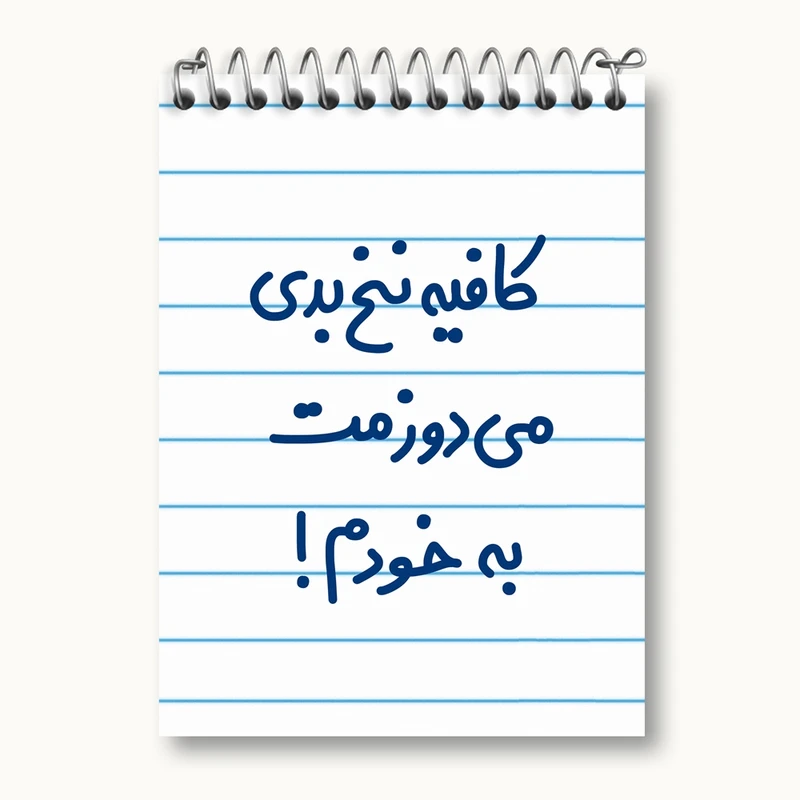 کافیه نخ بدی
می‌دوزمت
به خودم!